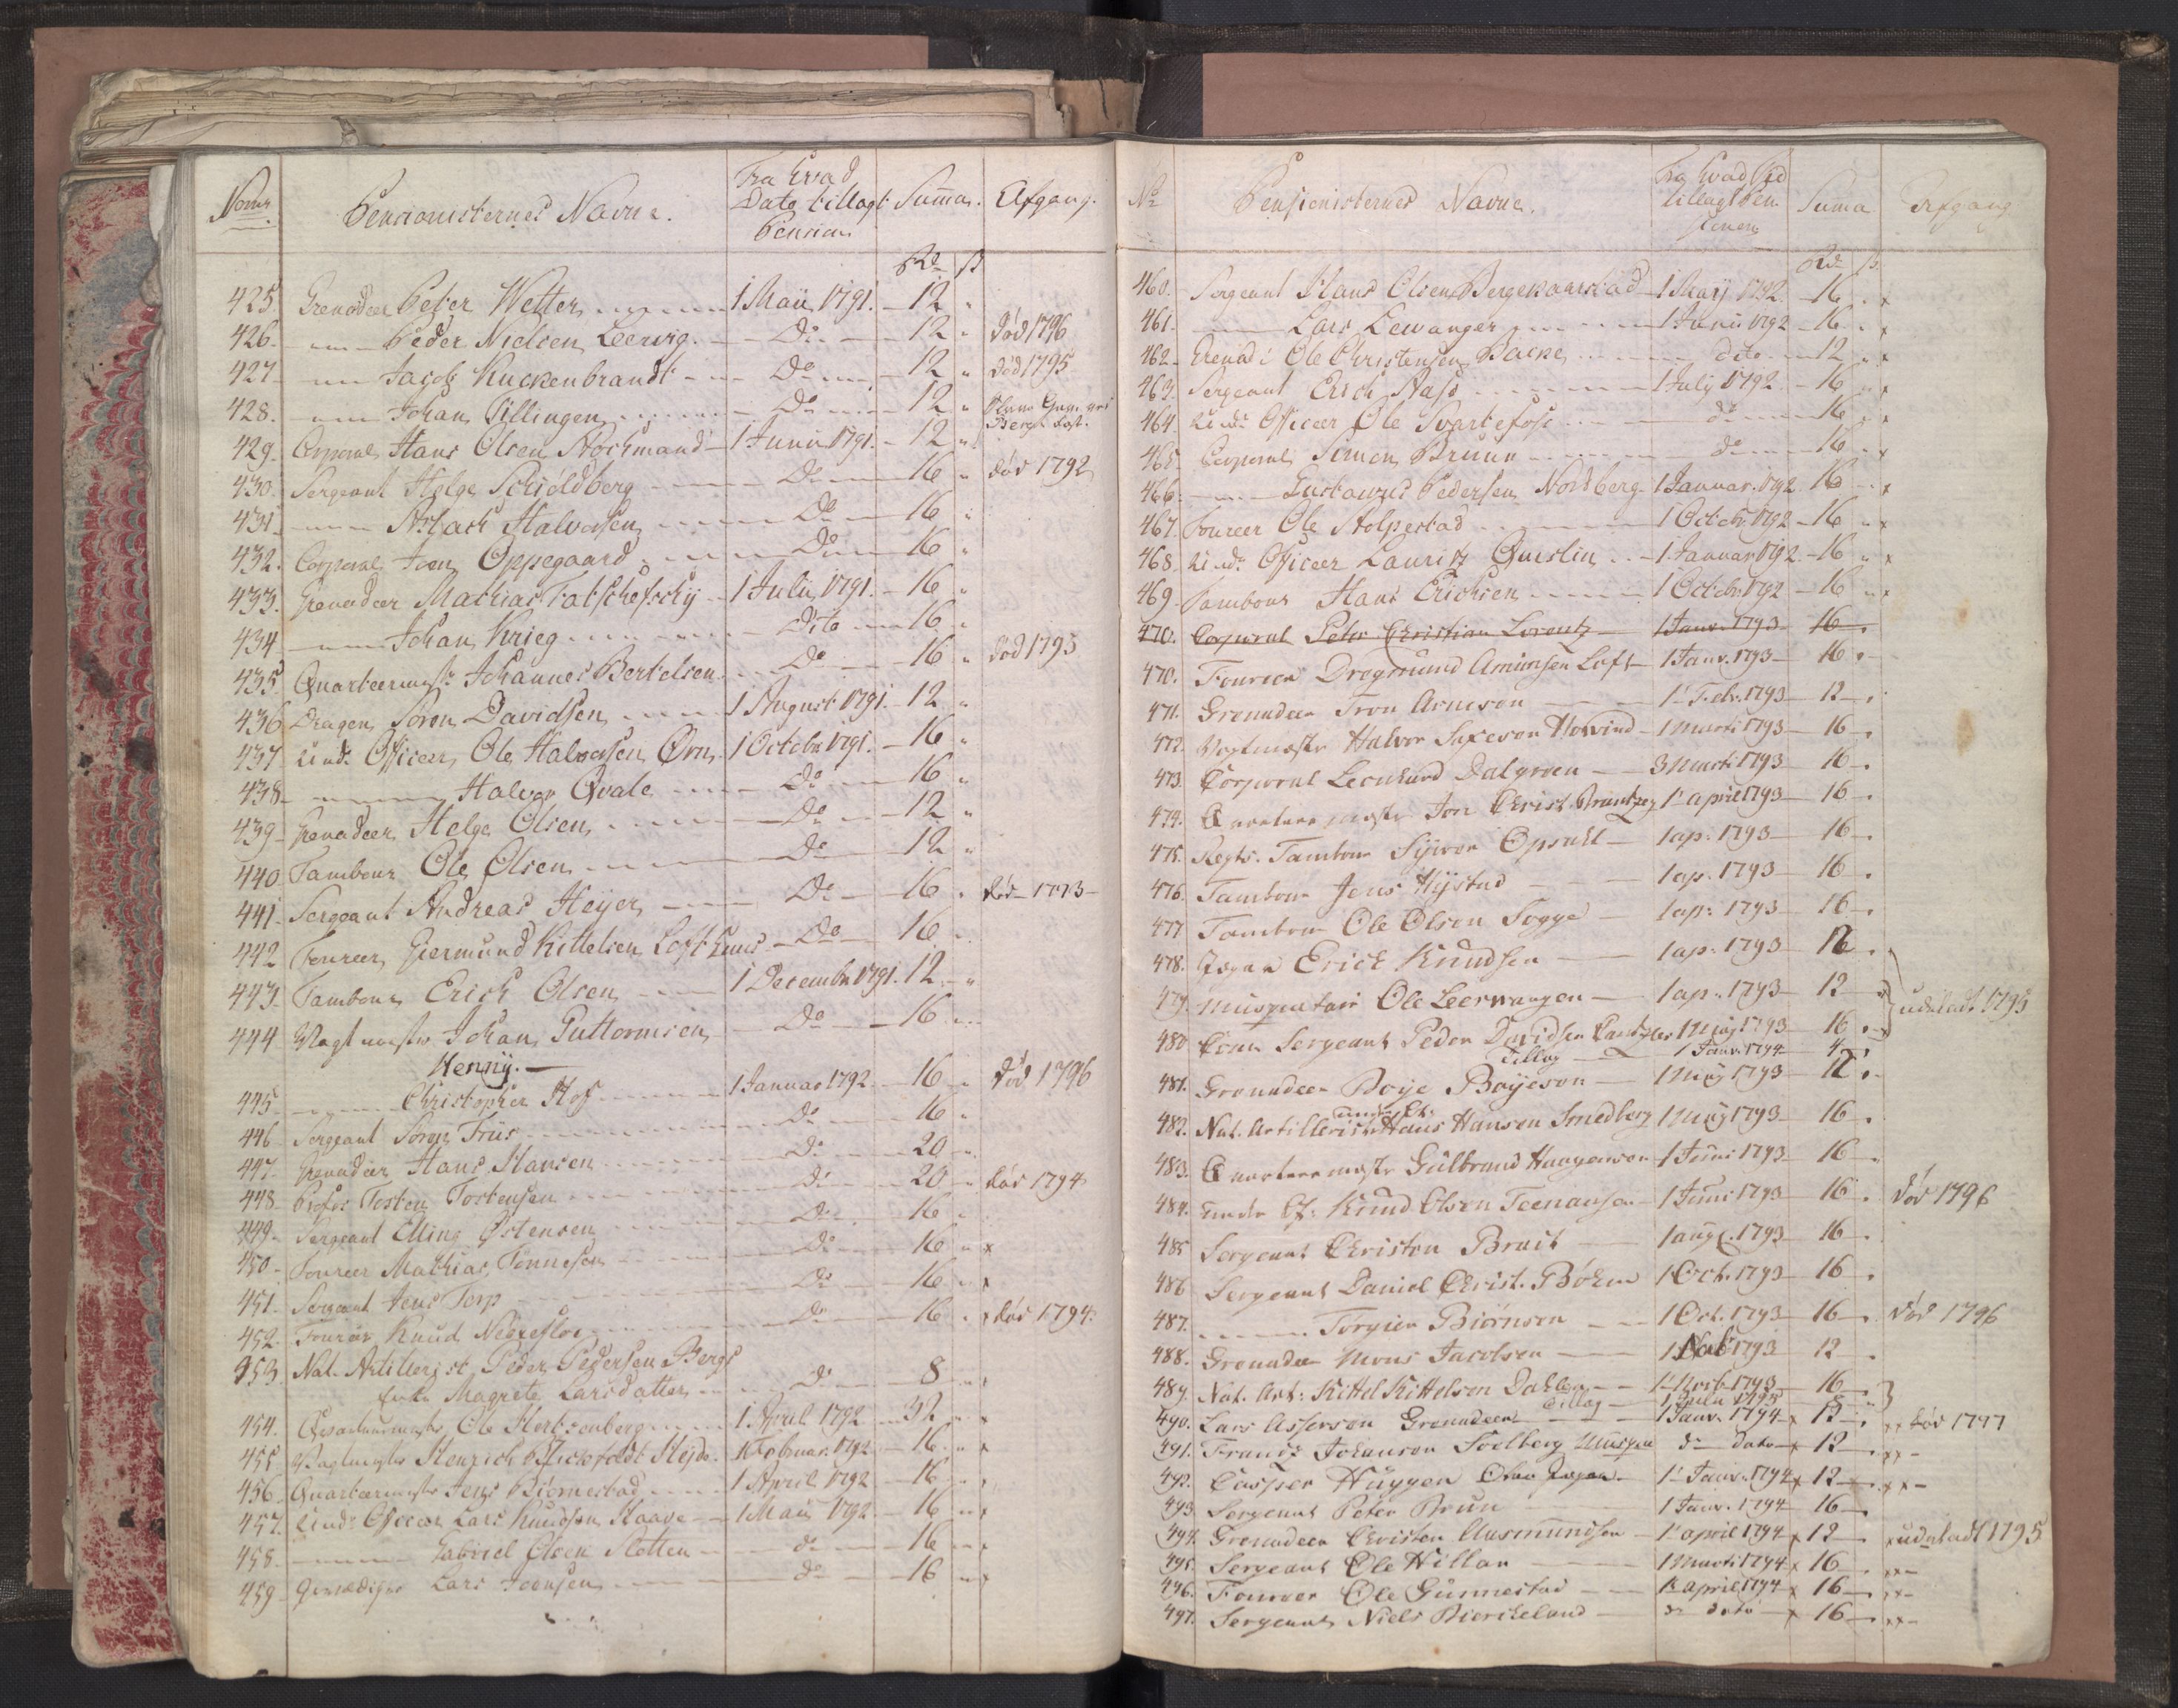 Nomr Pensionisternes Navne. Fra hvad Dato tillagt Pension Suma. Afgang.
Rd ß
425. Grenadeer Peter Wetter 1 Maii 1791. 12 "
426. Peder Nielsen Leervig. Do 12 " død 1796
427 Jacob Kuckenbrandt Do 12 " død 1795
428. Johan Tillingen Do 12 "
429. Corporal Hans Olsen Stochmand 1 Junii 1791. 12 "
430. Sergeant Helge Schioldberg Do 16 " død 1792
431 Aslach Halvorsen Do 16 "
432. Corporal Joen Oppegaard Do 16 "
433. Grenadeer Mathias Tatschefschy 1 Julii 1791. 16 "
434 Johan Krieg Dito 16 "
435. Quarteermestr Johannes Bertelsen Do 16 " død 1793
436 Dragon Søren Davidsen 1 August 1791. 12 "
437 Undr Officeer Ole Halvorsen Ørn 1 Octobr 1791. 16 "
438 Halvor Qvale Do 16 "
439 Grenadeer Helge Olsen Do 12 "
440 Tambour Ole Olsen Do 12 "
441 Sergeant Andreas Heyer Do 16 " død 1793
442 Foureer Giermund Kittelsen Lofthuus Do 16 "
443. Tambour Erich Olsen 1 Decembr 1791. 12 "
444 Vagtmestr Johan Guttormsen Do 16
Henny.
445 Christopher Hof 1 Januar 1792. 16 " død 1796
446 Sergeant Søren Friis Do 16
447. Grenadeer Hans Hansen Do 20
448 Torsten Tostensen Do 20 død 1794
449. Sergeant Elling Østensen Do 16
450 Foureer Mathias Tønnesen Do 16 " x
451. Sergeant Jens Torp Do 16 " x
452. Fourer Knud Do 16 x død 1794.
453 Nat. Artillerist Peder Pedersen Bergs
Enke Magrete Larsdatter Do 8
454. Quarteermestr Ole 1 April 1792 32 x
455 Vagtmestr Henrich 1 Februar. 1792 16 x
456 Quarteermestr Jens Biørnestad 1 April 1792 16
457. Undr Officeer Lars Knudsen Haave 1 Maii 1792 16
458. Gabriel Olsen Slotten do 16
459 Lars Joensen do 16
No Pensionisternes Navne. Fra hvad Tid tillagt Pensionen Suma Afgang
Rd ß
460. Sergeant Hans Olsen 1 Maij 1792. 16 x
461. Lars Lewanger 1 Junii 1792 16 x
462 Grenadr Ole Christensen Backe dito 12 x
463. Sergeant Erich Stafs 1 July 1792. 16 x
464 Undr Officeer Ole Svartefoss do 16 x
465 Corporal Simon Bruun do 16 x
466. Gustavus Pedersen Nordberg 1 Januar. 1792 16 x
467. Foureer Ole Stolpestad 1 Octobr 1792 16 x
468. Undr Officeer Lauritz Quislin 1. Januar 1792. 16 x
469. Tambour Hans Erichsen 1 Octobr. 1792 16 x
470. Corporal Peter Christian Lorentz 1 Janv. 1793 16
470. Foureer Loft 1 Janv. 1793 16
471. Grenadeer Tron Arneson 1 Febr. 1793 12
472. Vagtmestr Halvor 1 Marti 1793 16
473. Corporal Leonhard Dalgreen 3 Marti 1793 16
474. Quarteermestr Jon Christ. 1 april 1793 16
475. Regts. Tambour Syver Opsahl 1 ap. 1793 16
476. Tambour Jens Hystad 1 ap. 1793 16
477 Tambour Ole Olsen Sogge 1 ap. 1793 16
478. Jæger Erich Knudsen 1 ap: 1793 12
479. Musqueteer Ole Leerwangen 1 ap. 1793 12 udsladt 1795
480 Com: Sergeant Peder Davidsen 1 Maij 1793 16
Tillæg 1 Janv. 1794 4
481. Grenadeer Boye Boyeson 1 Maij 1793 12
482. Nat. Artillerist under Of. Hans Hansen Smedberg 1 Maij 1793 16
483. Quarteermestr Gulbrand Haagenson 1 Juni 1793 16
484. under Of: Knud Olsen 1 Juni 1793 16 død 1796
485 Sergeant Christen Brust 1 aug. 1793 16
486 Sergeant Daniel Christ. Böhm 1 Oct. 1793 16
487. Torgier Biörnsen 1 Oct. 1793 16 død 1796
488. Grenadeer Mons Jacobsen 1 Nob 1793 12
489. Nat. Art: Kittel Kittelsen 1 Novb. 1793 16
Tillæg
490. Lars Asserson Grenadeer 1 Janv. 1794 x 12 xx død 1797
491. Frandz Johanson Soelberg do dato x 12 xx
492. Casper Huggen 1 Janv. 1794 x 12 xx
493 Sergeant Peter Brun 1 Janv. 1794 16
494. Grenadeer Christen Aasmundsen 1 april 1794 x 12 x udsladt 1795
495. Sergeant Ole Hillan 1 Marti 1794 x 16 xx
496. Foureer Ole Gunnestad 1 april 1794 x 16 xx
497. Sergeant Niels Bierkeland do dato x 16 xx